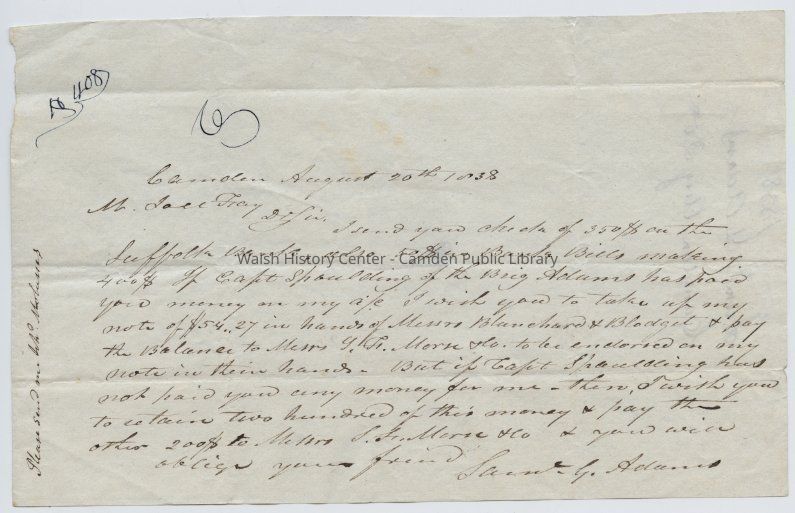 408
Camden August 20th 1838
Mr. Joel Fray
Dr Sir,
I send you check of 350$ on the
Suffolk Bank
Bills making
400$ If Capt Spaulding of the Brig Adams has paid
you money on my a/c I wish you to take up my
note of $54..27 in hands of Messrs Blanchard & Blodget & pay
the Balance to Messrs Morse & Co. to be endorsed on my
note in their hands - But if Capt Spaulding has
not paid you any money for me - then I wish you
to retain two hundred of this money & pay the
other 200$ to Messrs Morse & Co & you will
oblige your friend
Saml G. Adams
Please send me
Walsh History Center - Camden Public Library